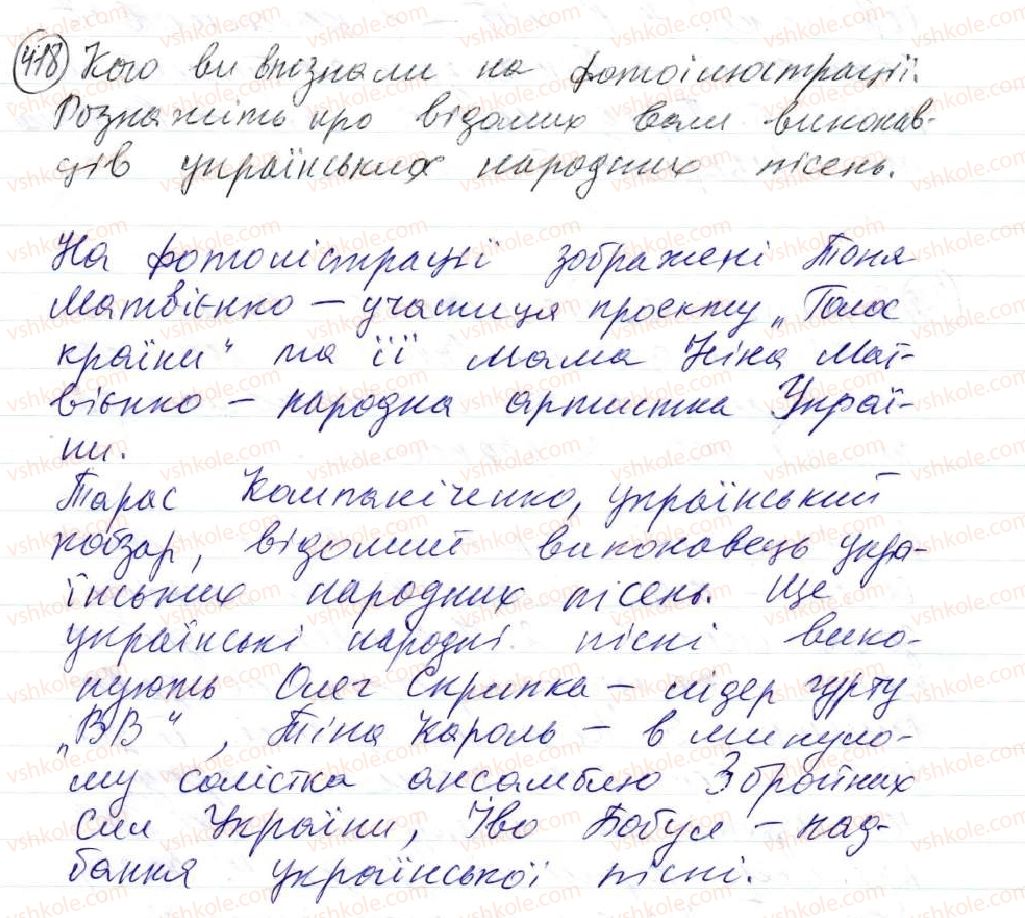 418 Кого ви впізнали на фотоілюстрації.
Розкажіть про відомих вам виконав-
ців українських народних пісень.
На фотолістрації зображені Тоня
Матвієнко – учасниця проєкту „Голос
країни" та її мама Ніна Мат-
вієнко – народна артистка Украї-
ни.
Тарас Компаніченко, український
кобзар, відомий виконавець укра-
їнських народних пісень. Ще
українські народні пісні вико-
нують Олег Скрипка – лідер гурту
„ВВ", Тіна Кароль – в минуло-
му солістка ансамблю Збройних
Сил України, Іво Бобул – над-
бання української пісні.
vshkole.com